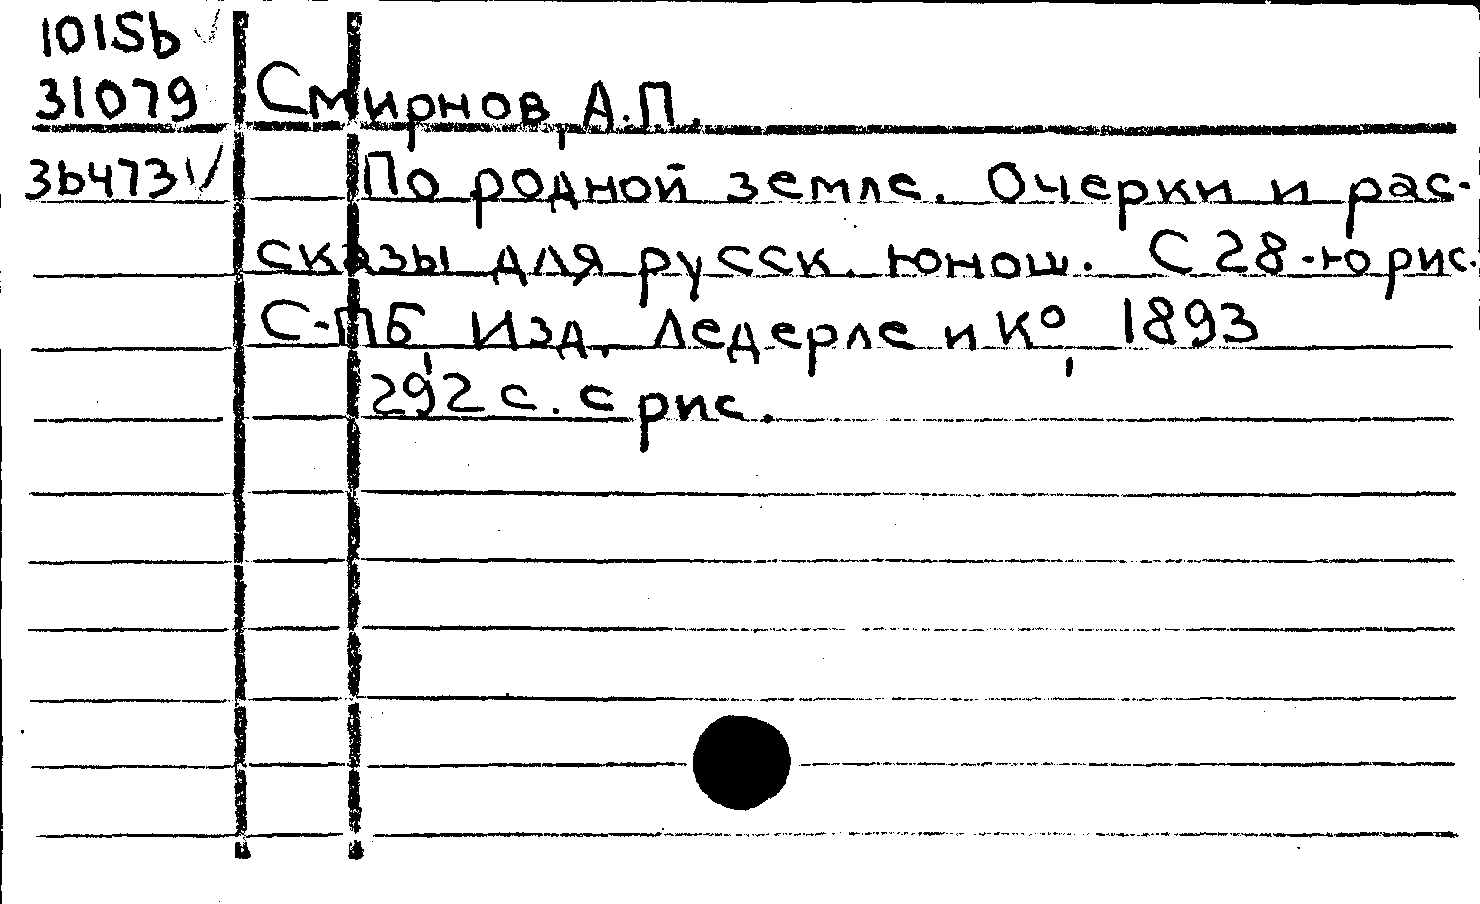 1015b ✓
31079 Смирнов, А.П.
3b473 ✓ По родной земле. Очерки и рас-
сказы для русск. юнош. С 28-ю рис.
С-ПБ, Изд. Ледерле и К°, 1893
292 с. с рис.